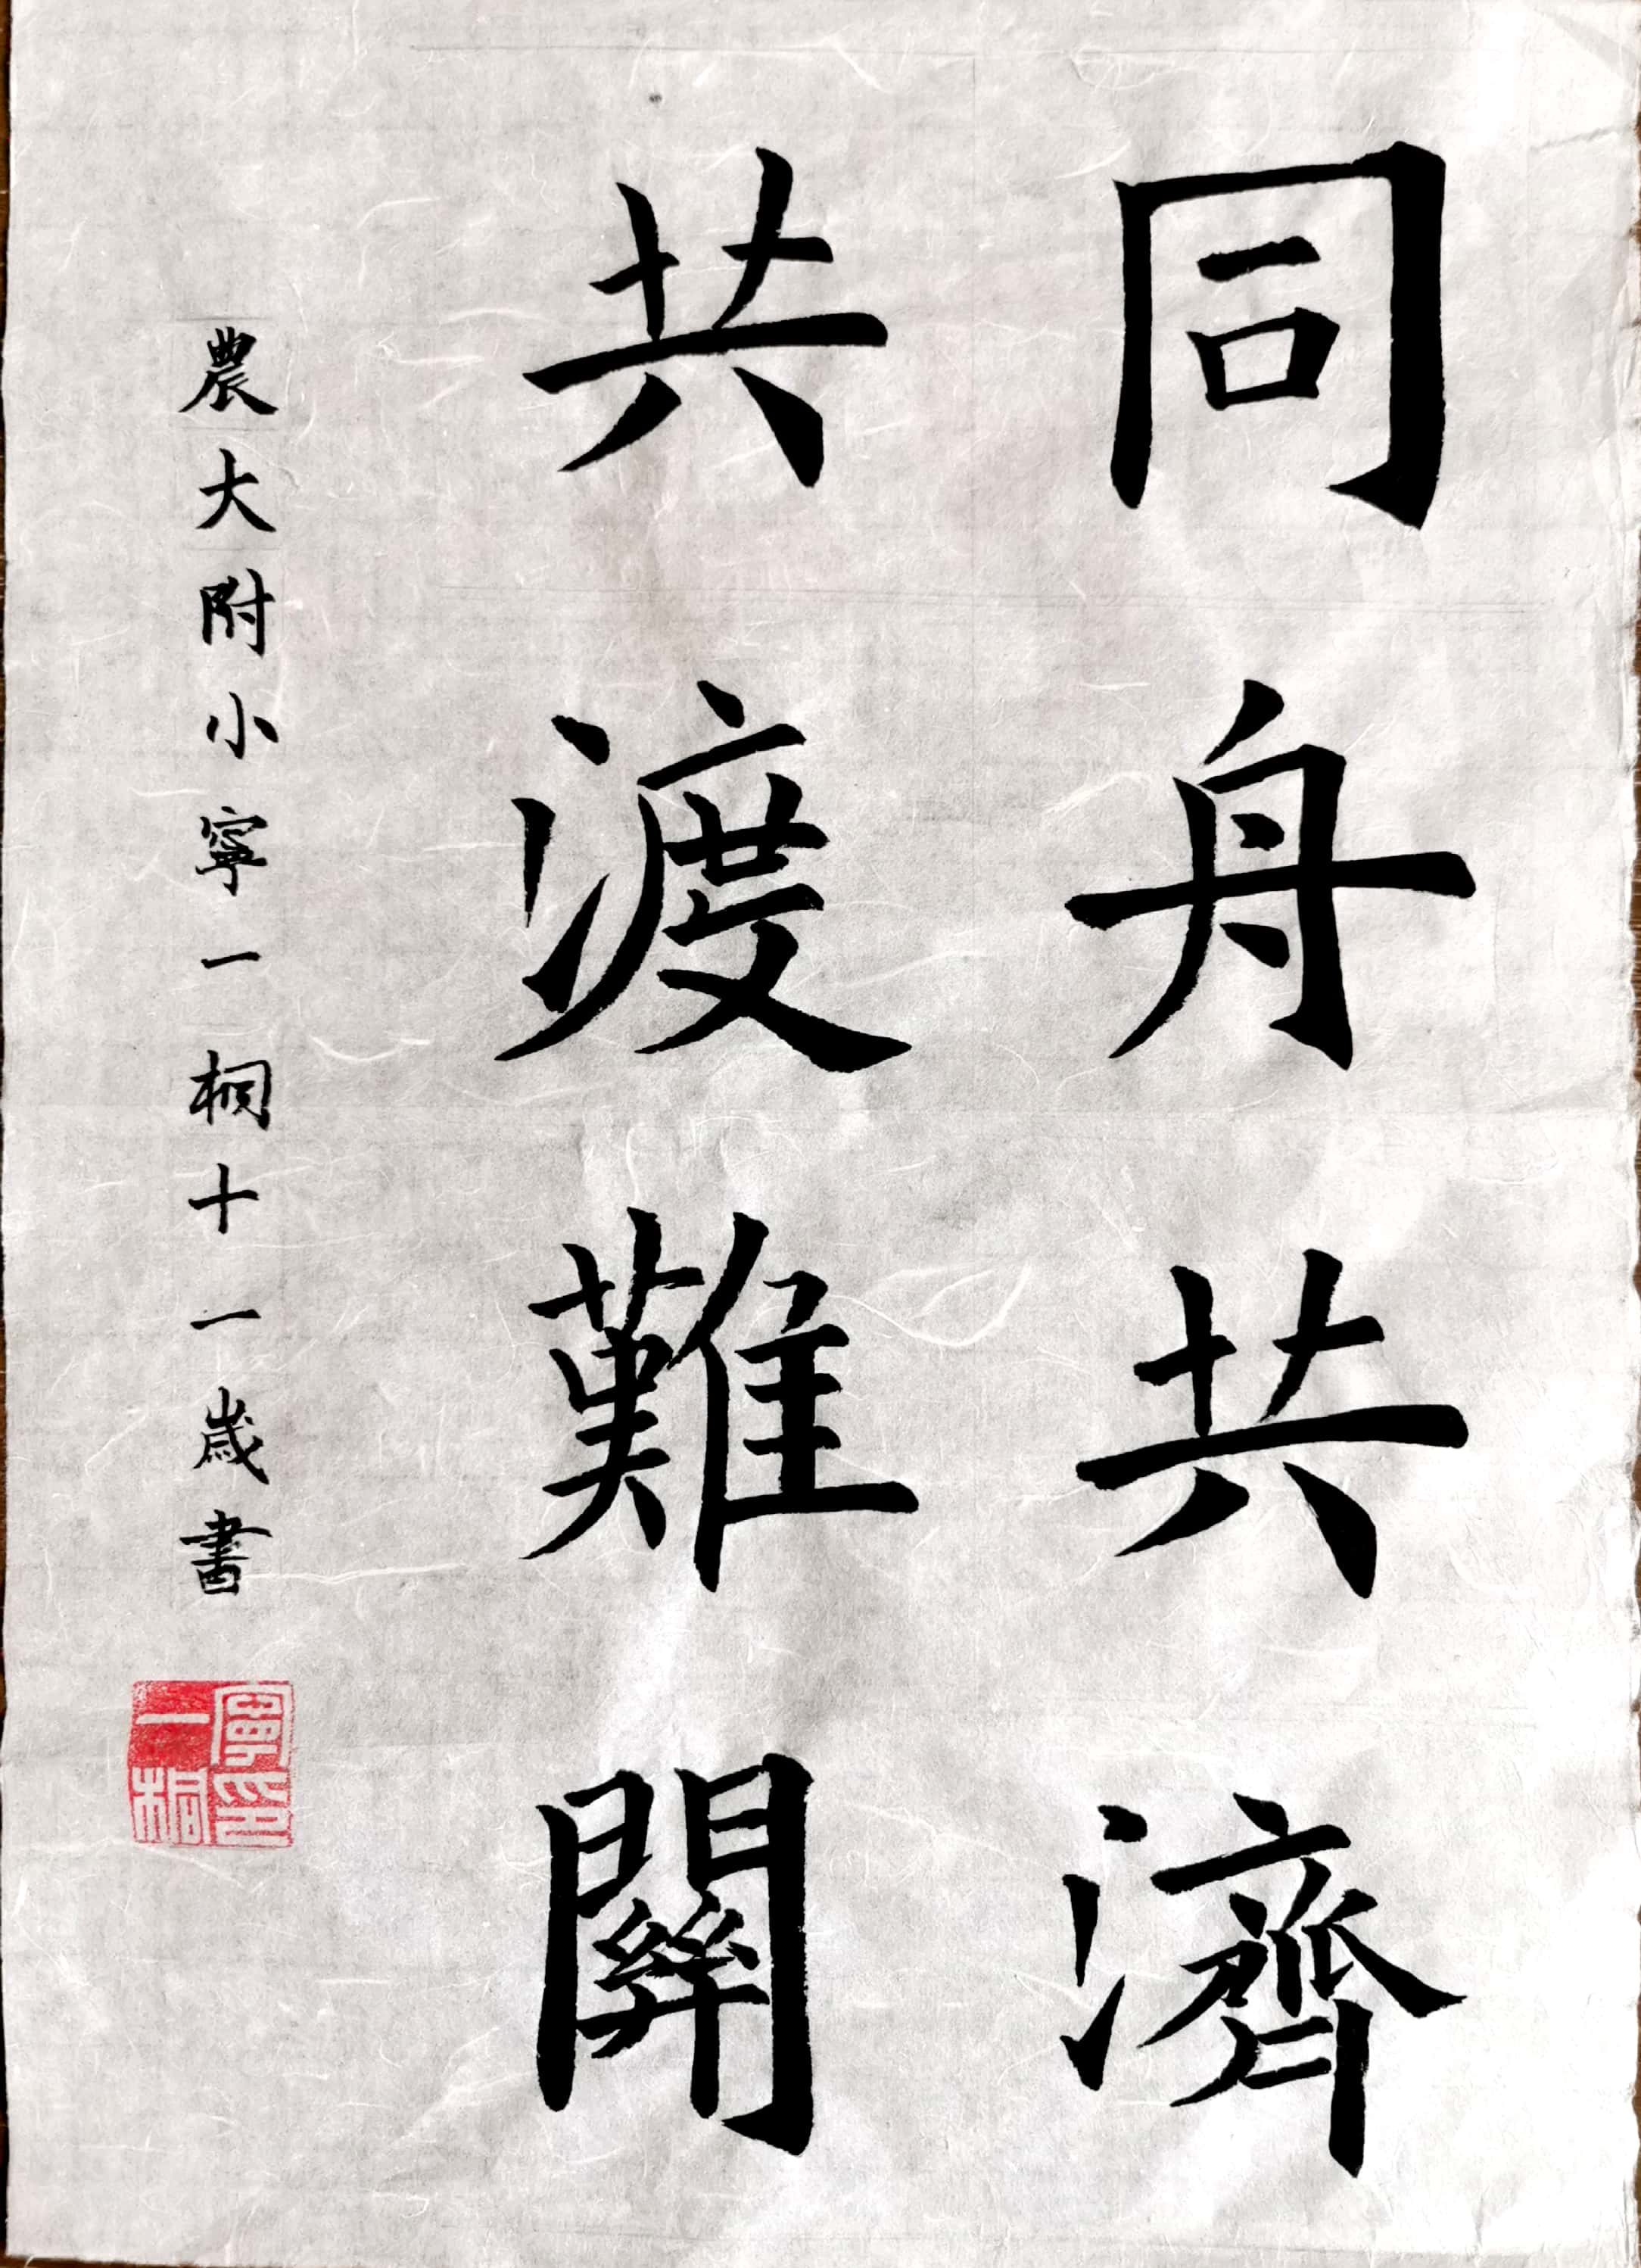 同舟共濟
共渡難關
農大附小寧一桐十一歲書
寧印
一桐